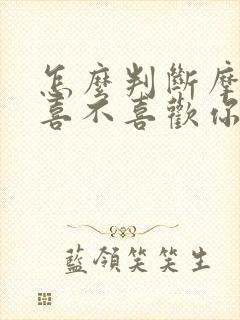 怎麼判斷摩
喜不喜歡你
藍領笑笑生